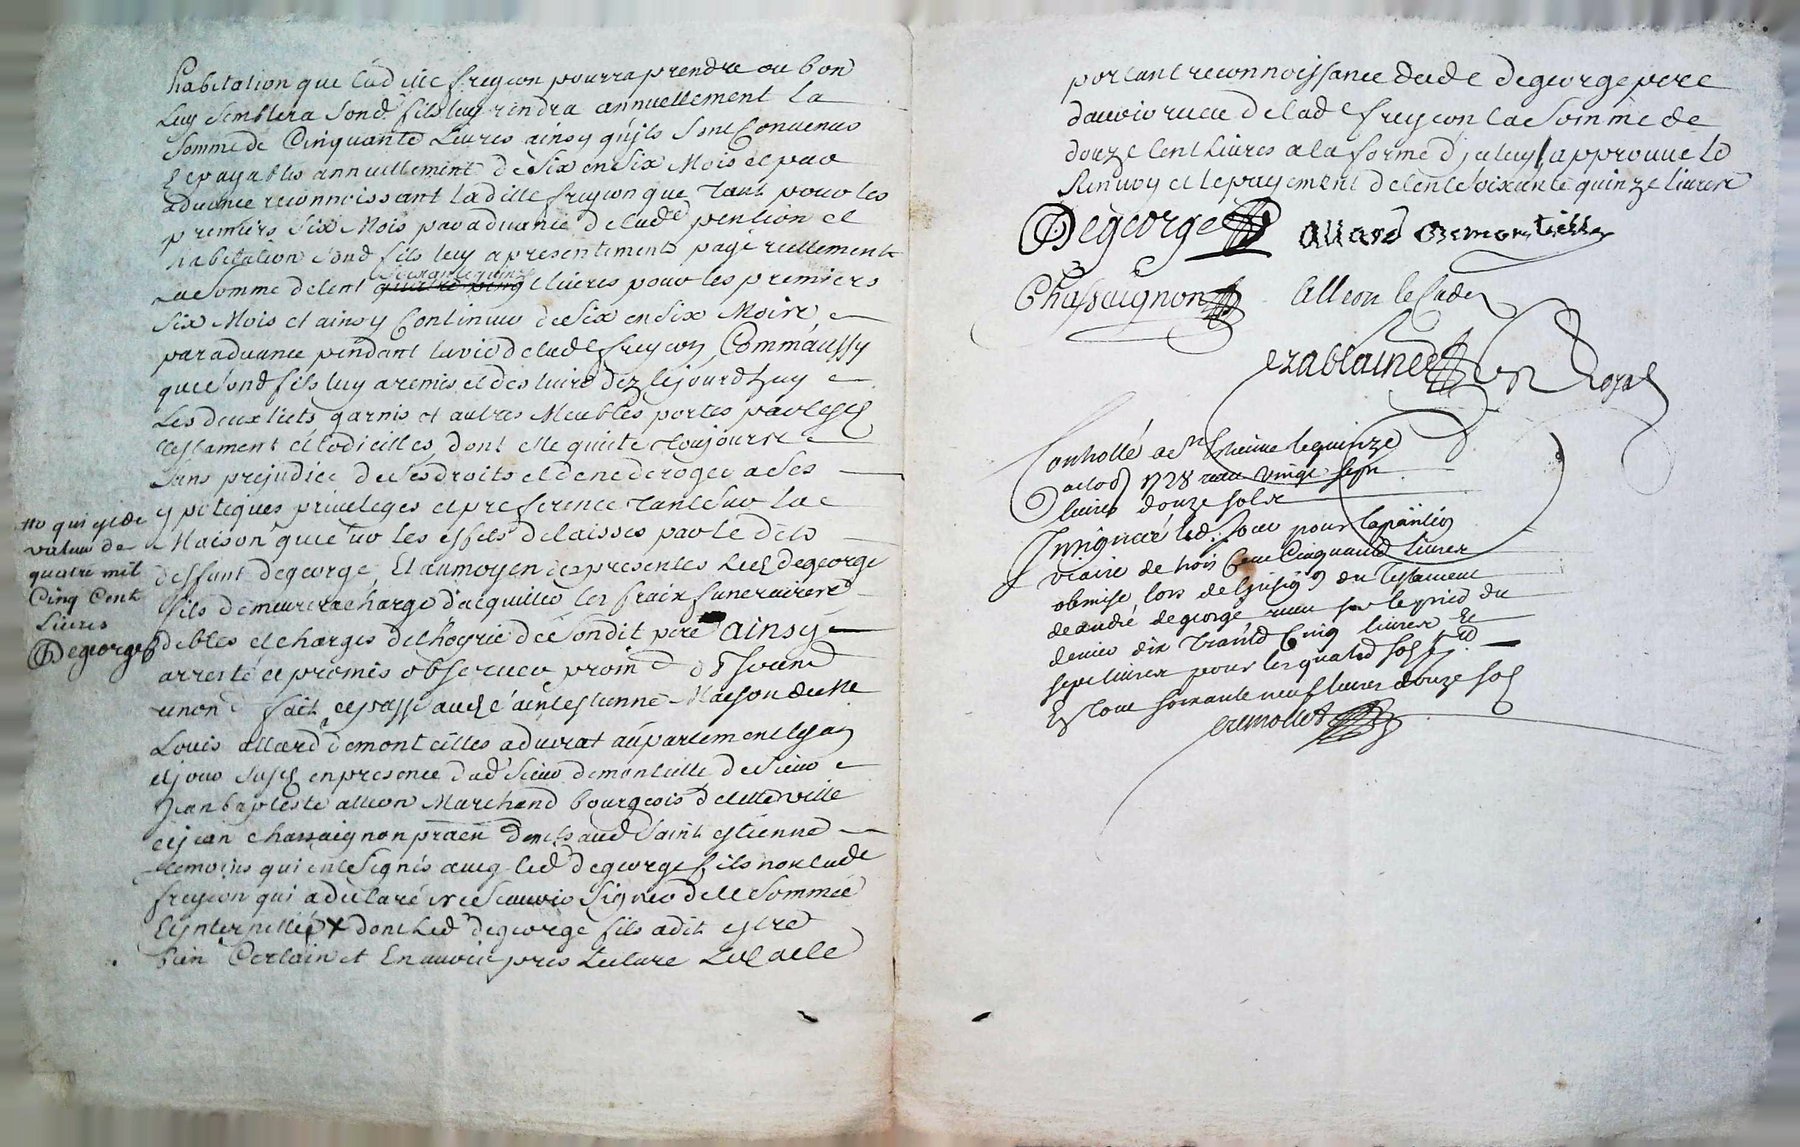 habitation que lad. dlle freycon pourra prendre ou bon
luy semblera sond. fils luy rendra annuellement la
somme de Cinquante Livres ainsy qu'ils sont Convenus
le payables annuellement de Six en Six Mois et par
advance reconnoissant ladille freycon que tant pour les
premiers Six Mois par advance de lade pention et
habitation sond fils luy a presentement payé reellement
La Somme de Cent soixante quinze livres pour les premiers
Six Mois et ainsy Continuer de Six en Six Moire
par advance pendant la vie de lade freycon, Comm'aussy
que sond fils luy a remis et des livré dez lejourd'huy
Les deux liets garnis et autres Meubles portes par lesd
testament et Codicilles, dont elle quitte toujours
sans prejudice de ses droits et de ne deroger a ses
ypoteques privileges et preference tant sur la
Maison que sur les effets delaisses par le
deffunt degeorge, Et au moyen des presentes Led degeorge
fils demeurera chargé d'acquitter les fraix funeraires
debtes et charges de l'hoyrie de Sondit pere ainsy
arresté et promis observer
fait et passé aud. saint estienne Maison de Me
Louis allard demonteilles advocat au parlement
et jour susd en presence dud Sieur demonteille de Sieur
Jean baptiste alleon Marchand bourgeois de cette ville
et jean chassaignon aud Saint estienne
temoins qui ont Signés avec led degeorge fils non lade
freycon qui a declaré ne Scavoir Signer de ce Sommée
et interpellée X dont led degeorge fils a dit estre
bien Certain et En avoir pris Lecture
no qui est de
valeur de
quatre mil
Cinq Cent
Livres
Degeorge
portant reconnoissance dude Degeorge pere
d'avoir receu de lade freycon la Somme de
douze Cent Livres a la forme d'jceluy, approuvé le
Renvoy et le payement de cent soixante quinze livres
Degeorge allard Demonteille
Chassaignon alleon le Cadet
ezablaine Royal
Controllé a St Etienne le quinze
1728 receu vingt sept
livres douze sols
Insinué led. jour pour la pention
viaire de trois Cent Cinquante livres
obmise lors de l'insion du Testament
de andré degeorge, receu sur le pied du
denier dix trante Cinq livres Et
sept livres pour les quatre sols p. L.
Es tout soixante neuf livres douze sols